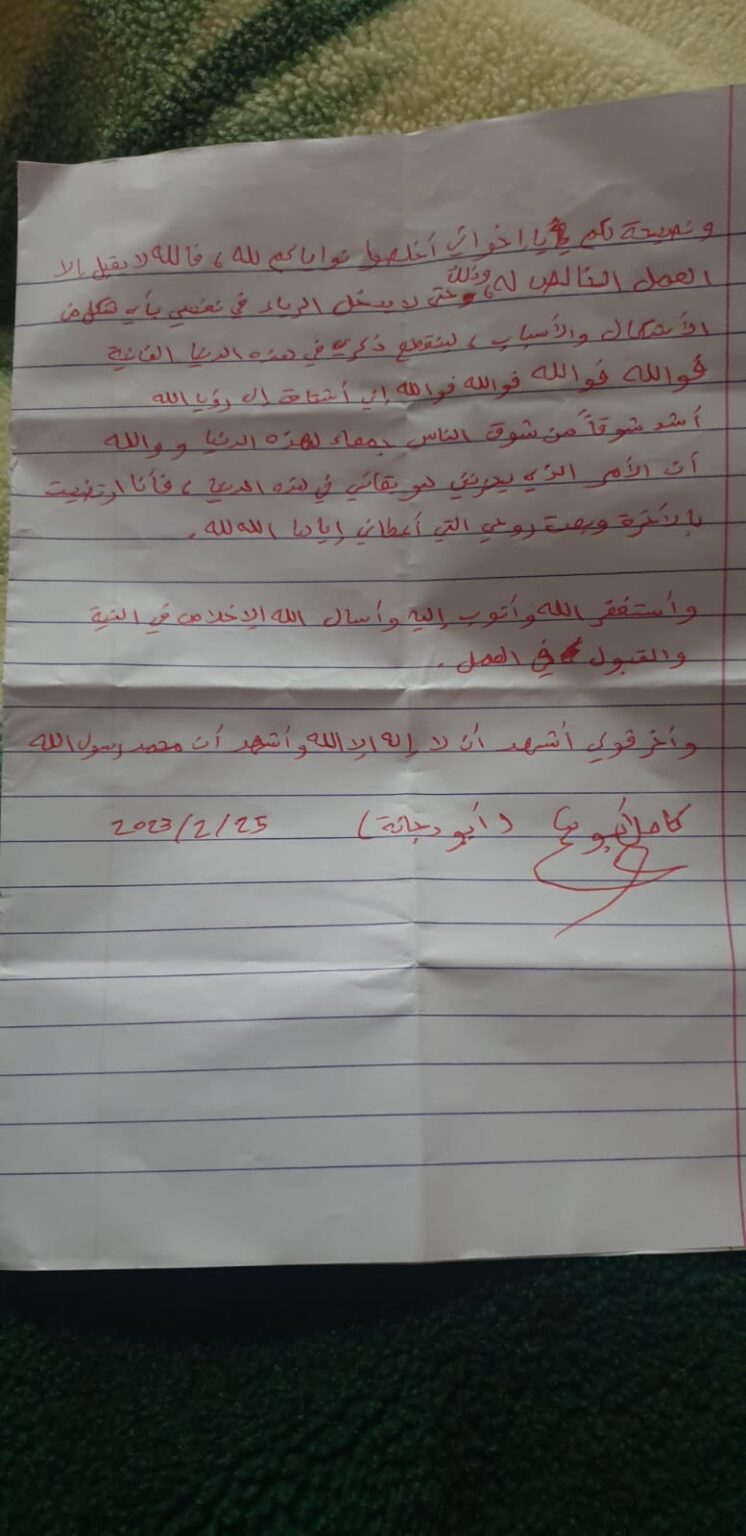 ونصيحة لكم يا إخواني أخلصوا نواياكم لله، فالله لا يقبل إلا
العمل الخالص له، وذلك حتى لا يدخل الرياء في نفسي بأي شكل من
الأشكال والأسباب، لينقطع ذكري في هذه الدنيا الفانية
فوالله فوالله فوالله فوالله إني أشتاق إلى رؤيا الله
أشد شوقاً من شوق الناس جمعاء لهذه الدنيا ووالله
أن الأمر الذي يحزنني هو بقائي في هذه الدنيا، فأنا ارتضيت
بالآخرة وبعت روحي التي أعطاني إياها الله لله.
وأستغفر الله وأتوب إليه وأسال الله الإخلاص في النية
والقبول في العمل.
وأخر قولي أشهد أن لا إله إلا الله وأشهد أن محمد رسول الله
كامل (أبو دجانة) 2023/2/25